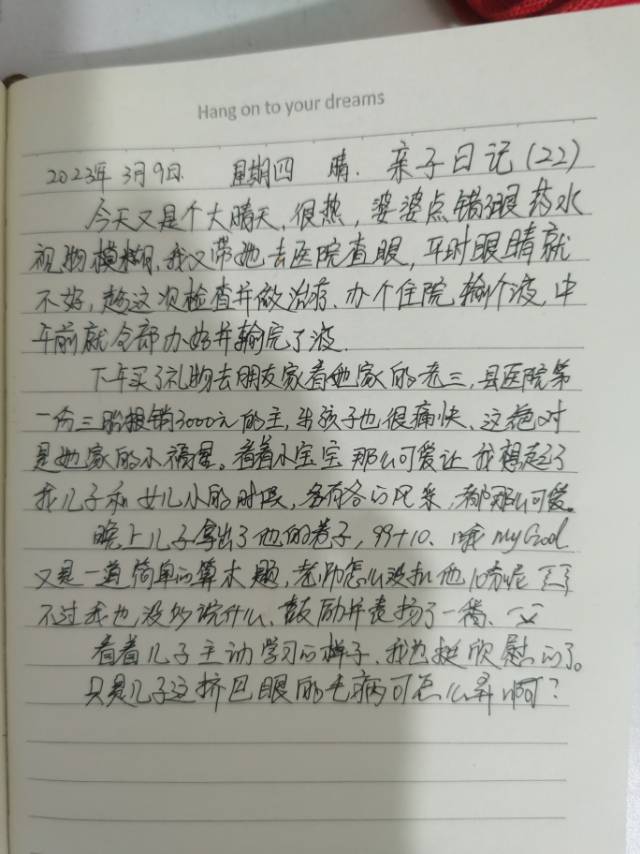 Hang on to your dreams
2023年3月9日 星期四 晴. 亲子日记(22)
今天又是个大晴天,很热,婆婆点错眼药水
视物模糊,我又带她去医院查眼,平时眼睛就
不好,趁这次检查并做治疗、办个住院,输个液,中
午前就全部办好并输完了液.
下午买了礼物去朋友家看她家的老三,县医院第
一份三胎报销3000元的主,生孩子也很痛快、这绝对
是她家的小福星。看着小宝宝那么可爱让我想起了
我儿子和女儿小的时候,各有各的风采,都那么可爱。
晚上儿子拿出了他的卷子,99+10、哦my God
又是一道简单的算术题,老师怎么没扣他10分呢
不过我也没多说什么、鼓励并表扬了一番、
看着儿子主动学习的样子、我也挺欣慰的了。
只是儿子这挤巴眼的毛病可怎么弄啊?